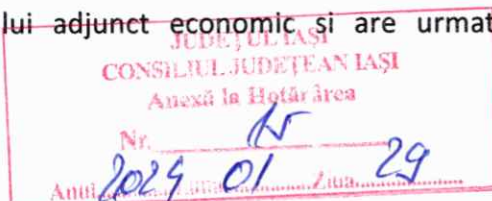 lui adjunct economic și are urmat
JUDEȚUL IAȘI
CONSILIUL JUDEȚEAN IAȘI
Anexă la Hotărârea
Nr.
Anul 2024 01 Ziua 29